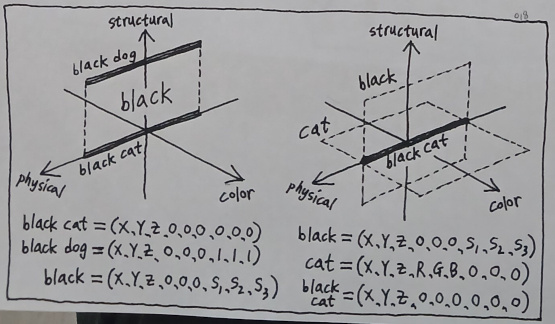 018
structural
black dog
black
black cat
physical
color
black cat = (X, Y, Z, 0, 0, 0, 0, 0, 0)
black dog = (X, Y, Z, 0, 0, 0, 1, 1, 1)
black = (X, Y, Z, 0, 0, 0, S₁, S₂, S₃)
structural
black
cat
black cat
physical
color
black = (X, Y, Z, 0, 0, 0, S₁, S₂, S₃)
cat = (X, Y, Z, R, G, B, 0, 0, 0)
black
cat = (X, Y, Z, 0, 0, 0, 0, 0, 0)